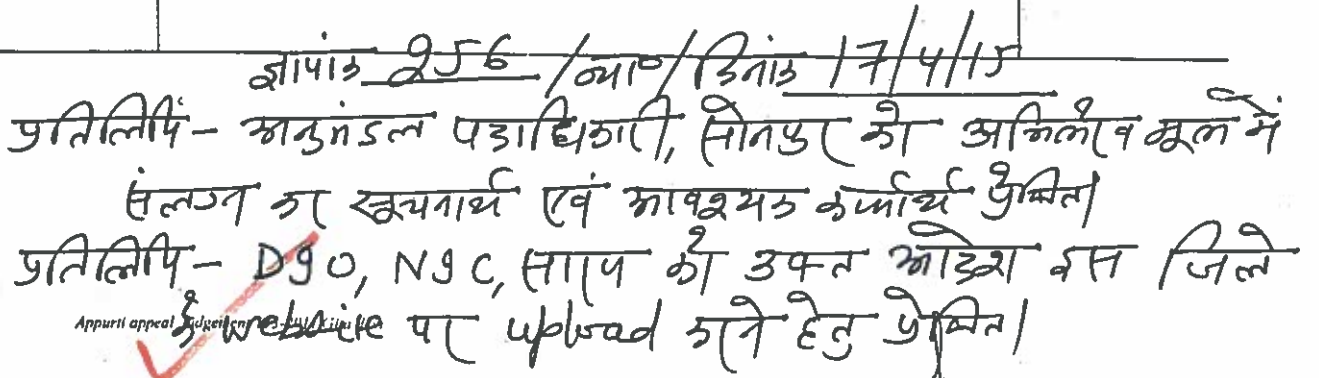 ज्ञापांक 256 /न्या०/ दिनांक 17/4/15
प्रतिलिपि- अनुमंडल पदाधिकारी, सोनपुर को अभिलेख मूल में
संलग्न कर सूचनार्थ एवं आवश्यक कार्यार्थ प्रेषित।
प्रतिलिपि- DIO, NIC, सारण को उक्त आदेश इस जिले
के website पर upload करने हेतु प्रेषित।
Appurti appeal